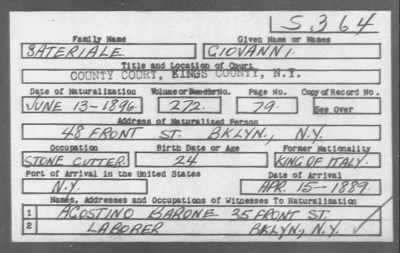 L S 364
Family Name Given Name or Names
SATERIALE GIOVANNI.
Title and Location of Court
COUNTY COURT, KINGS COUNTY, N.Y.
Date of Naturalization Volume or Bundle No. Page No. Copy of Record No.
JUNE 13-1896. 272. 79. See Over
Address of Naturalized Person
48 FRONT ST. BKLYN., N.Y.
Occupation Birth Date or Age Former Nationality
STONE CUTTER. 24 KING OF ITALY.
Port of Arrival in the United States Date of Arrival
N.Y. APR. 15-1889.
Names, Addresses and Occupations of Witnesses To Naturalization
1 AGOSTINO BARONE 35 FRONT ST.
2 LABORER BKLYN., N.Y.